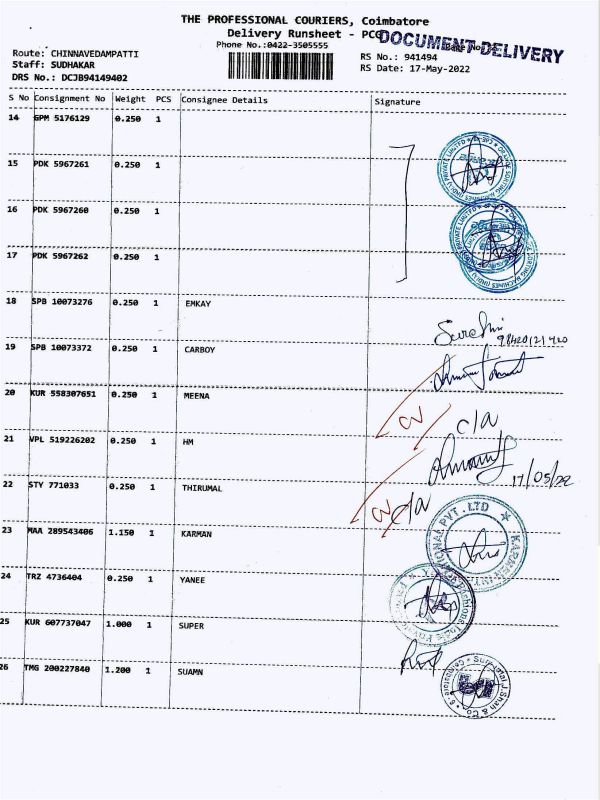 THE PROFESSIONAL COURIERS, Coimbatore
Delivery Runsheet - PCG
DOCUMENT DELIVERY
Phone No.:0422-3505555
Route: CHINNAVEDAMPATTI
RS No.: 941494
Staff: SUDHAKAR
RS Date: 17-May-2022
DRS No.: DCJB94149402
S No Consignment No Weight PCS Consignee Details Signature
14 GPM 5176129 0.250 1
15 PDK 5967261 0.250 1
16 PDK 5967260 0.250 1
17 PDK 5967262 0.250 1
18 SPB 10073276 0.250 1 EMKAY
19 SPB 10073372 0.250 1 CARBOY
20 KUR 558307651 0.250 1 MEENA
c/a
21 VPL 519226202 0.250 1 HM
17/05/22
22 STY 771033 0.250 1 THIRUMAL
c/a
PVT. LTD
23 MAA 289543406 1.150 1 KARMAN
24 TRZ 4736404 0.250 1 YANEE
25 KUR 607737047 1.000 1 SUPER
26 TMG 200227840 1.200 1 SUAMN